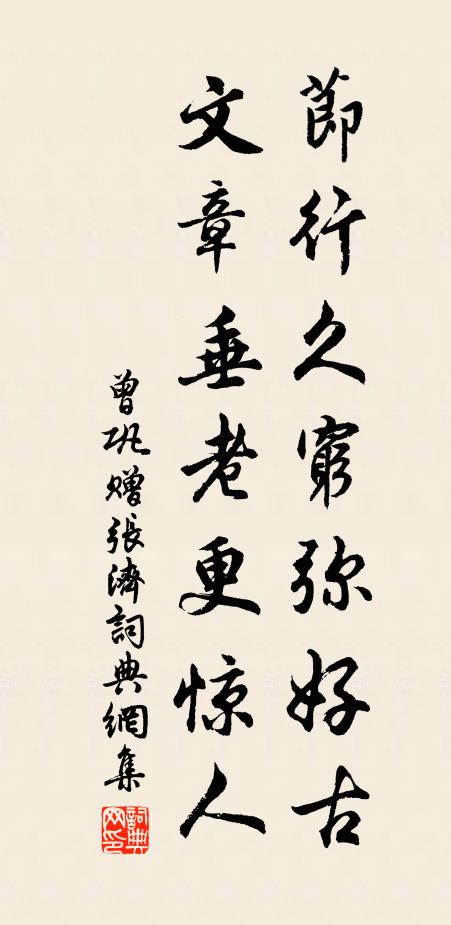 節行久窮弥好古
文章垂老更惊人
曾巩赠張濟詞典網集
詞典
网印